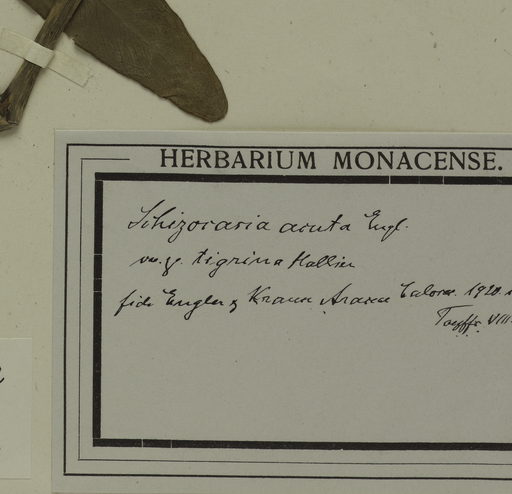 HERBARIUM MONACENSE.
Schizocasia acuta Engl.
var. tigrina Hallier
fide Engler & Krause Araceae Coloc. 1920
VIII.